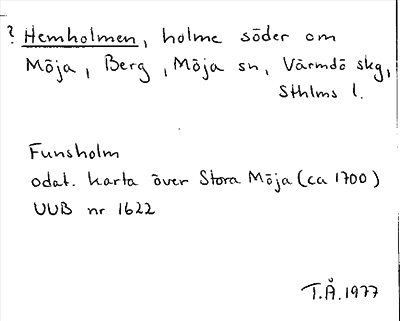 ? Hemholmen, holme söder om
Möja, Berg, Möja sn, Värmdö skg,
Sthlms l.
Funsholm
odat. karta över Stora Möja (ca 1700)
UUB nr 1622
T.Å. 1977